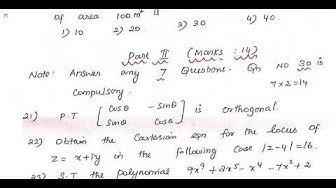 of area 100 m² is
1) 10 2) 20 3) 30 4) 40.
Part II (Marks : 14)
Note: Answer any 7 Questions. Qn NO 30 is
compulsory. 7x2=14
21) P.T [cosθ -sinθ
sinθ cosθ] is orthogonal.
22) Obtain the Cartesian eqn for the locus of
z = x+iy in the following case |z-4|=16.
23) S.T the polynomial 9x⁹+2x⁵-x⁴-7x²+2